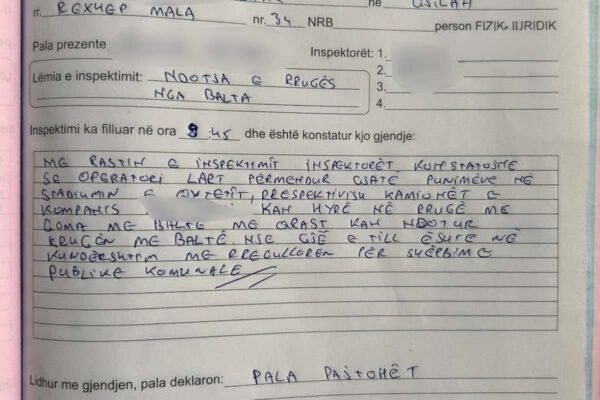 rr. REXHEP MALA në
nr. 34 NRB person FIZIK- IIJRIDIK
Pala prezente Inspektorët: 1.
2.
Lëmia e inspektimit: NDOTJA E RRUGËS 3.
NGA BALTA 4.
Inspektimi ka filluar në ora 9:45 dhe është konstatur kjo gjendje:
ME RASTIN E INSPEKTIMIT INSPEKTORËT KONSTATOJNË
SE OPERATORI LART PËRMENDUR GJATË PUNIMËVE NË
STADIUMIN E QYTETIT, PRESPEKTIVISHT KAMIONËT E
KOMPANIS KAH HYRË NË RRUGË ME
GOMA ME BALTË ME ÇRAST KAH NDOTUR
RRUGËN ME BALTË. NSE GJË E TILL ËSHTË NË
KUNDËRSHTIM ME RREGULLOREN PËR SHËRBIME
PUBLIKE KOMUNALE
Lidhur me gjendjen, pala deklaron: PALA PAJTOHËT